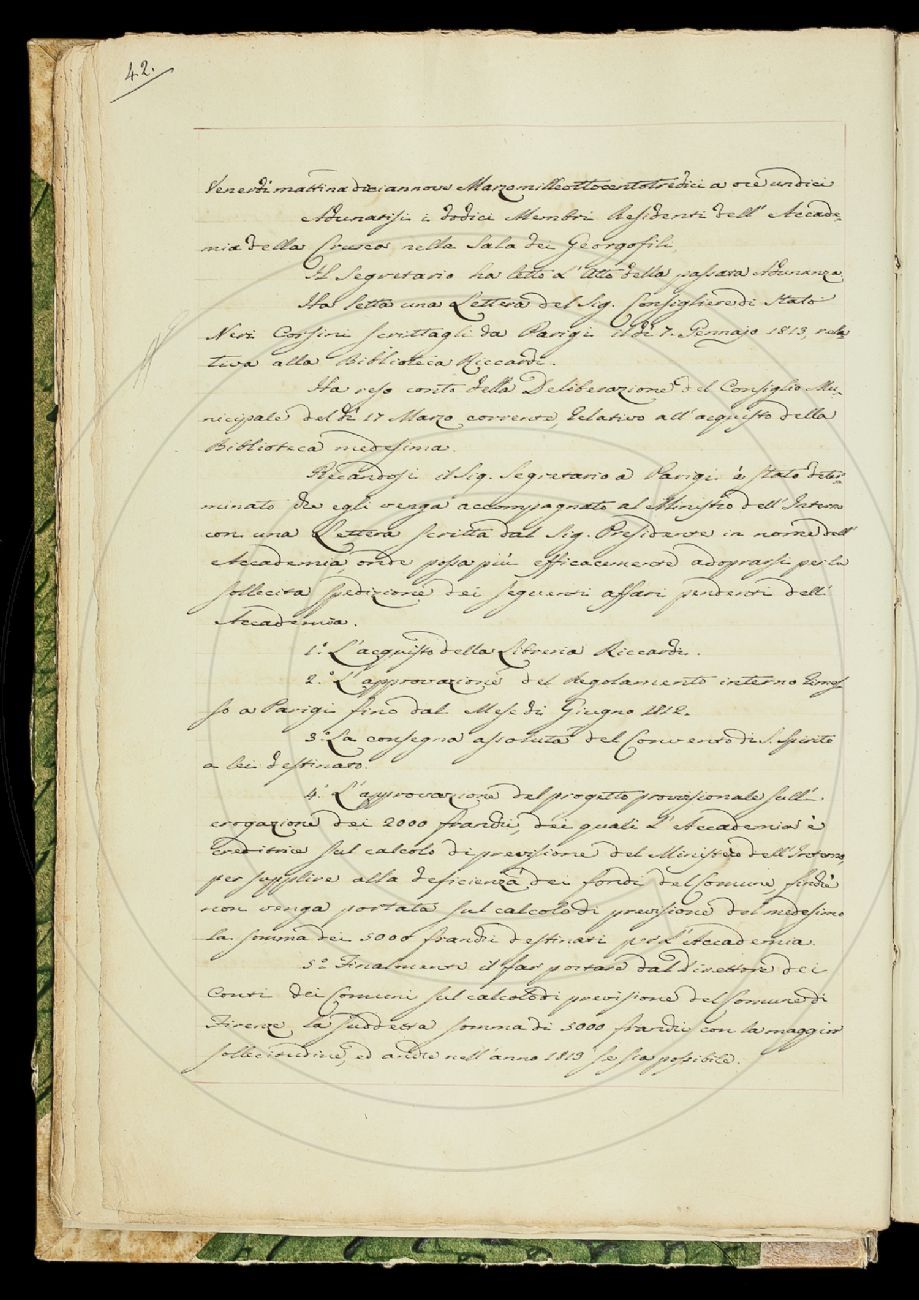 42.
Venerdì mattina diciannove Marzo mille ottocento tredici a ore undici
Adunatisi i dodici Membri Residenti dell' Accade-
mia della Crusca nella Sala dei Georgofili
Il Segretario ha letto l'Atto della passata Adunanza.
Ha letta una Lettera del Sig. Consigliere di Stato
Neri Corsini scrittagli da Parigi il dì 7. Gennajo 1813, rela-
tiva alla Biblioteca Riccardi.
Ha reso conto della Deliberazione del Consiglio Mu-
nicipale del dì 17 Marzo corrente, relativo all'acquisto della
Biblioteca medesima.
Recandosi il Sig. Segretario a Parigi è stato deter-
minato che egli venga accompagnato al Ministro dell'Interno
con una Lettera scritta dal Sig. Presidente in nome dell'
Accademia, onde possa più efficacemente adoprarsi per la
sollecita spedizione dei seguenti affari pendenti dell'
Accademia.
1.° L'acquisto della Libreria Riccardi.
2.° L'approvazione del Regolamento interno rimes-
so a Parigi fino dal Mese di Giugno 1812.
3.° La consegna assoluta del Convento di S. Spirito
a lei destinato.
4.° L'approvazione del progetto provvisionale sull'
erogazione dei 2000 franchi, dei quali l'Accademia è
creditrice sul calcolo di previsione del Ministero dell'Interno,
per supplire alla deficienza dei fondi del Comune, finchè
non venga portata sul calcolo di previsione del medesimo
la somma dei 5000 franchi destinati per l'Accademia.
5.° Finalmente il far portare dal Direttore dei
Conti dei Comuni sul calcolo di previsione del Comune di
Firenze, la suddetta somma di 5000 franchi con la maggior
sollecitudine, ed anche nell'anno 1813 se sia possibile.